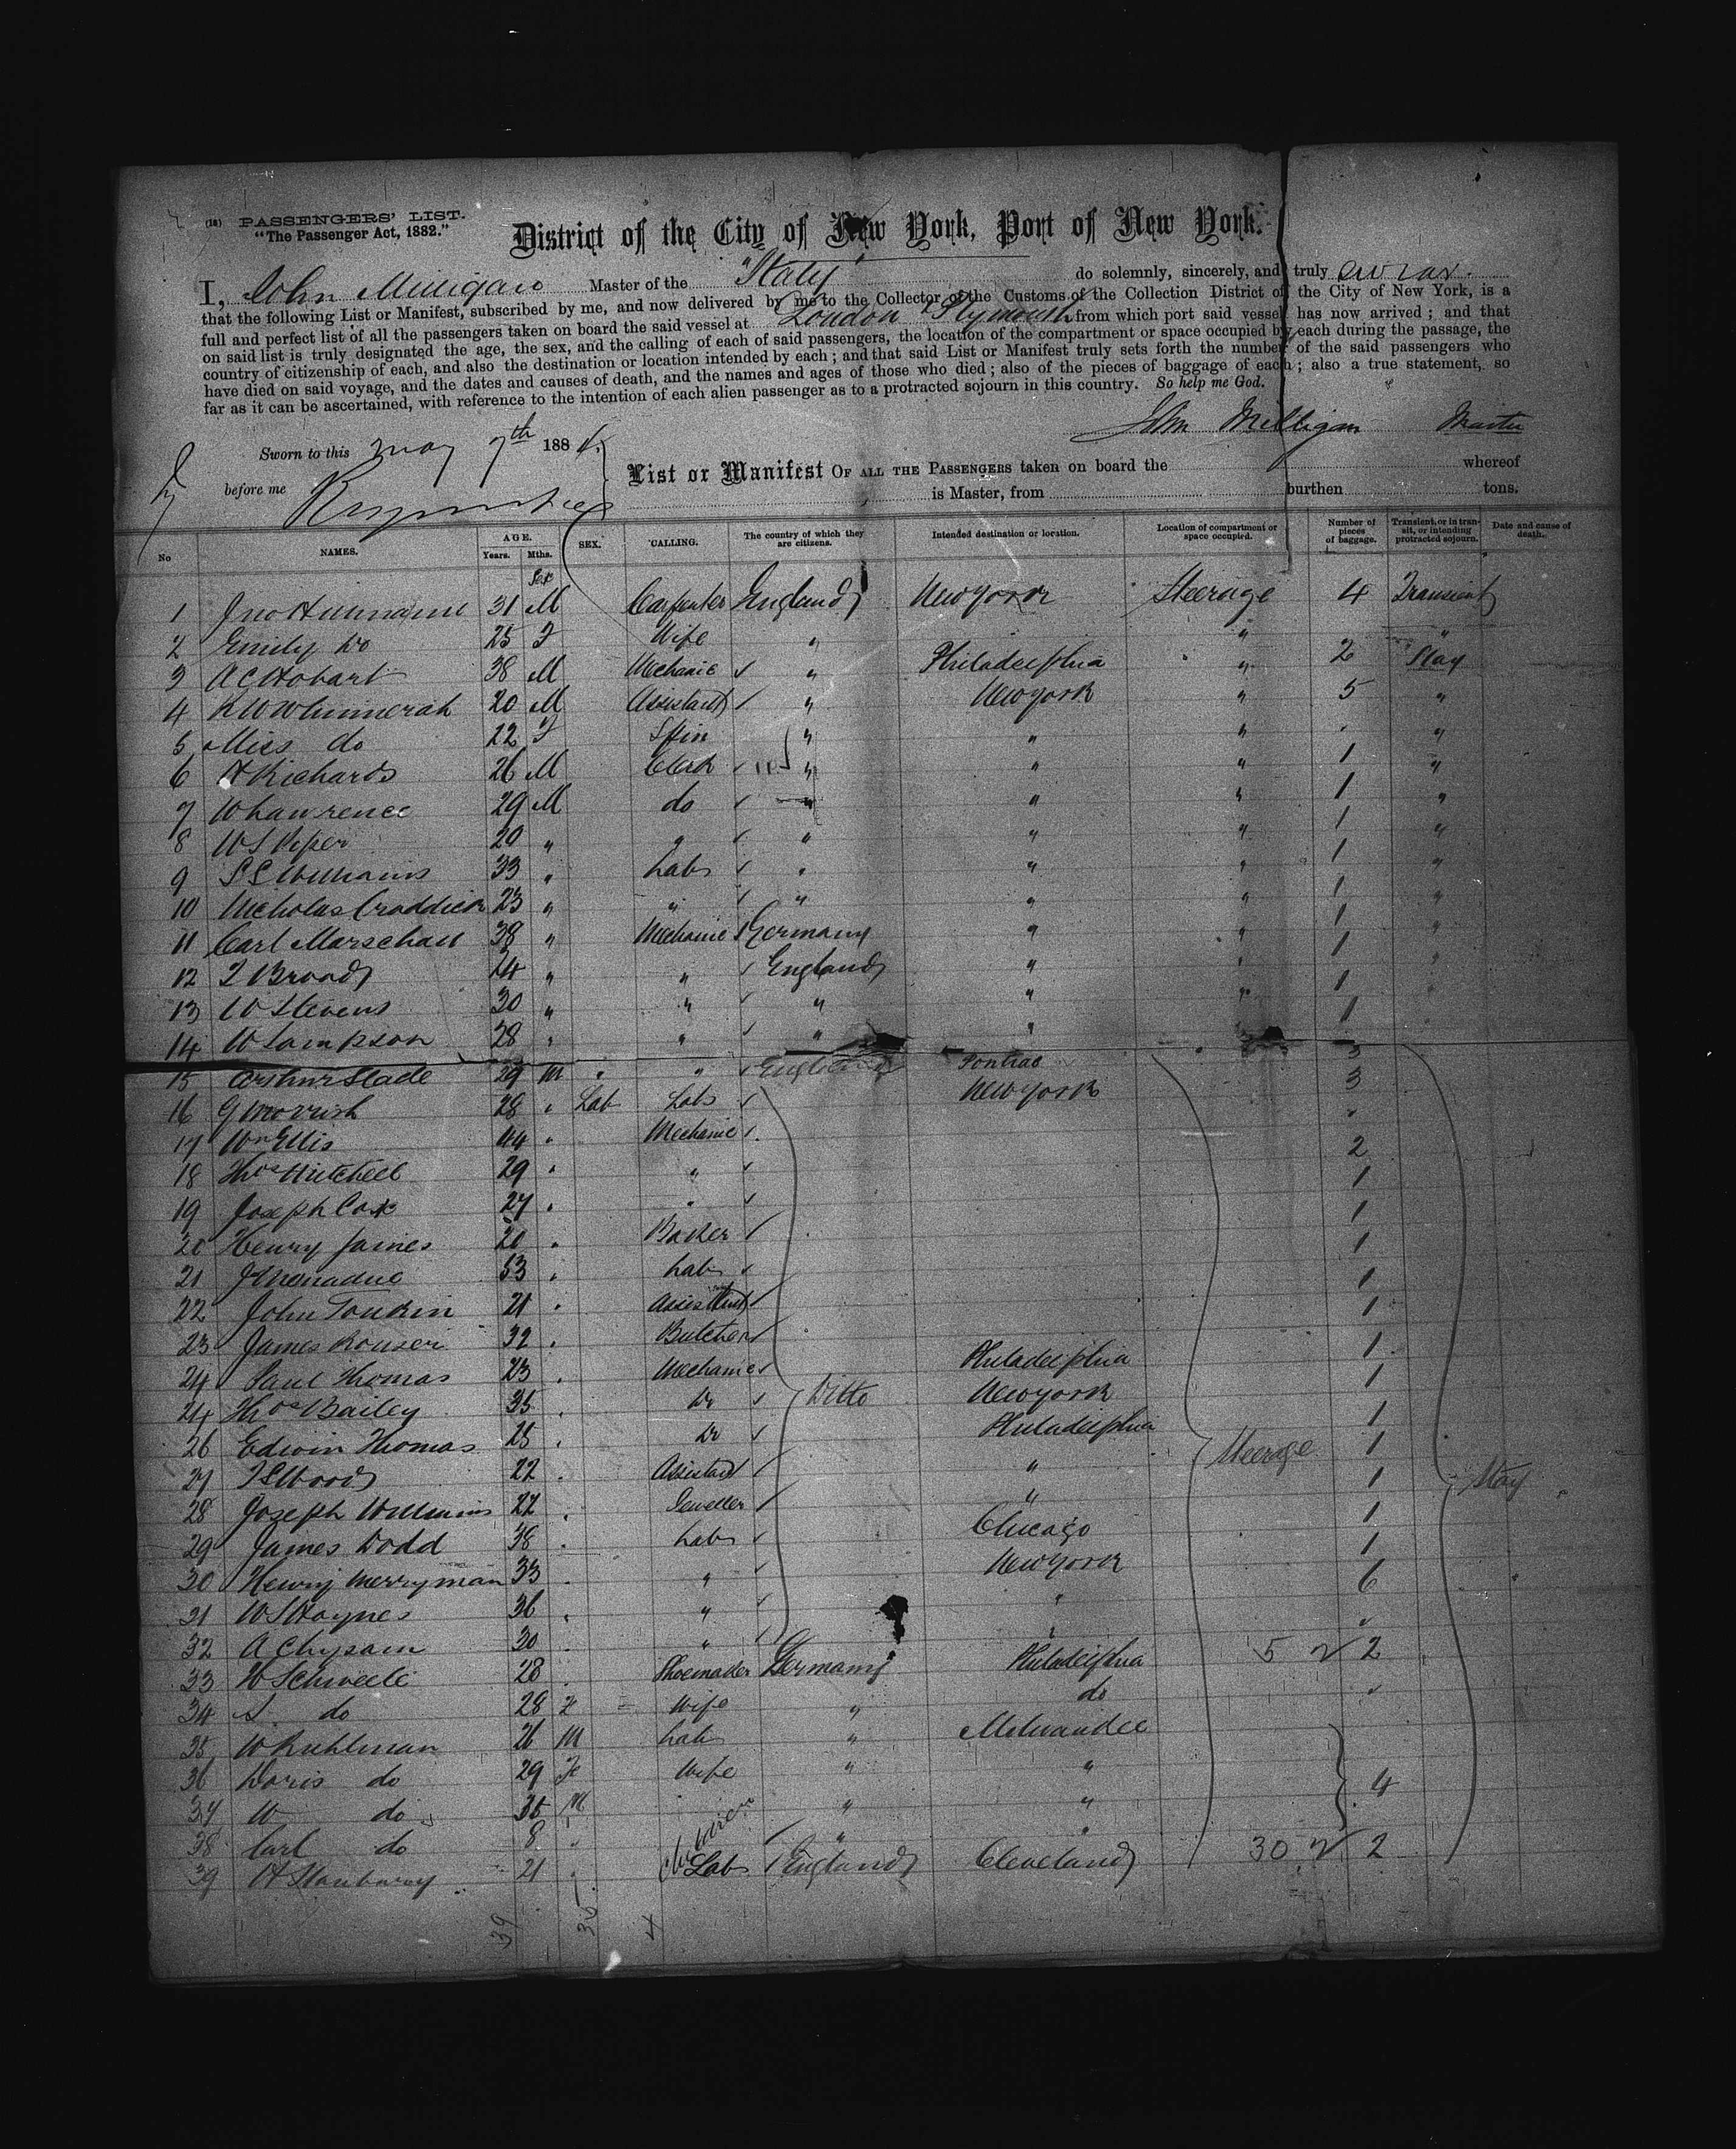 (18) PASSENGERS' LIST.
"The Passenger Act, 1882."
District of the City of New York, Port of New York.
I, John Milligan Master of the "Italy" do solemnly, sincerely, and truly swear
that the following List or Manifest, subscribed by me, and now delivered by me to the Collector of the Customs of the Collection District of the City of New York, is a
full and perfect list of all the passengers taken on board the said vessel at London & Plymouth from which port said vessel has now arrived; and that
on said list is truly designated the age, the sex, and the calling of each of said passengers, the location of the compartment or space occupied by each during the passage, the
country of citizenship of each, and also the destination or location intended by each; and that said List or Manifest truly sets forth the number of the said passengers who
have died on said voyage, and the dates and causes of death, and the names and ages of those who died; also of the pieces of baggage of each; also a true statement, so
far as it can be ascertained, with reference to the intention of each alien passenger as to a protracted sojourn in this country. So help me God.
John Milligan Master
Sworn to this May 7th 1884.
before me
List or Manifest OF ALL THE PASSENGERS taken on board the whereof
is Master, from burthen tons.
No NAMES. AGE. Years. Mths. SEX. CALLING. The country of which they are citizens. Intended destination or location. Location of compartment or space occupied. Number of pieces of baggage. Transient, or in transit, or intending protracted sojourn. Date and cause of death.
Sex
1 Jno 31 M Carpenter England New York Steerage 4 Transient
2 Emily Do 25 F Wife " "  "
3 A C Hobart 38 M Mechanic " Philadelphia " 2 Stay
4 20 M Assistant " New York " 5 "
5 Miss do 22 F Spin " " " "
6 H Richards 26 M Clerk " " " 1 "
7 W Lawrence 29 M do " " " 1 "
8 W S Piper 29 " " " " " 1 "
9 S S Williams 33 " Lab " " " 1 "
10 Nicholas Craddick 23 " " " " " 1 "
11 Carl Marschall 38 " Mechanic Germany " " 1 "
12 T Broad 24 " " England " " 1 "
13 W Stevens 30 " " " " " 1 "
14 W Lampson 28 " " " " " 1
15 Arthur Slade 29 M " " England Pontiac 3
16 G Morrish 28 " Lab Lab New York 3
17 Wm Ellis 44 " Mechanic "
18 Thos Mitchell 29 " " 2
19 Joseph Cox 27 " " 1
20 Henry James 20 " Baker 1
21 J Menadue 53 " Lab 1
22 John Tonkin 21 " Assistant 1
23 James 32 " Butcher 1
24 Paul Thomas 23 " Mechanic Philadelphia 1
24 Thos Bailey 35 " Do Ditto New York 1
26 Edwin Thomas 28 " Do Philadelphia Steerage 1
27 T S Wood 22 " Assistant " 1 Stay
28 Joseph Williams 22 " Jeweller " 1
29 James Dodd 38 " Lab Chicago 1
30 Henry Merryman 33 " " New York 1
31 W S Haynes 36 " " " 6
32 A 30 " " " "
33 W 28 " Shoemaker Germany Philadelphia 5 2
34 S. do 28 F Wife " do "
35 W Kuhlman 26 M Lab " Milwaukee
36 Doris do 29 Fe Wife " "
37 W do 35 M " " 4
38 Carl do 8 " children " "
39 H Stanbury 21 " Lab England Cleveland 30 2
39 35 4